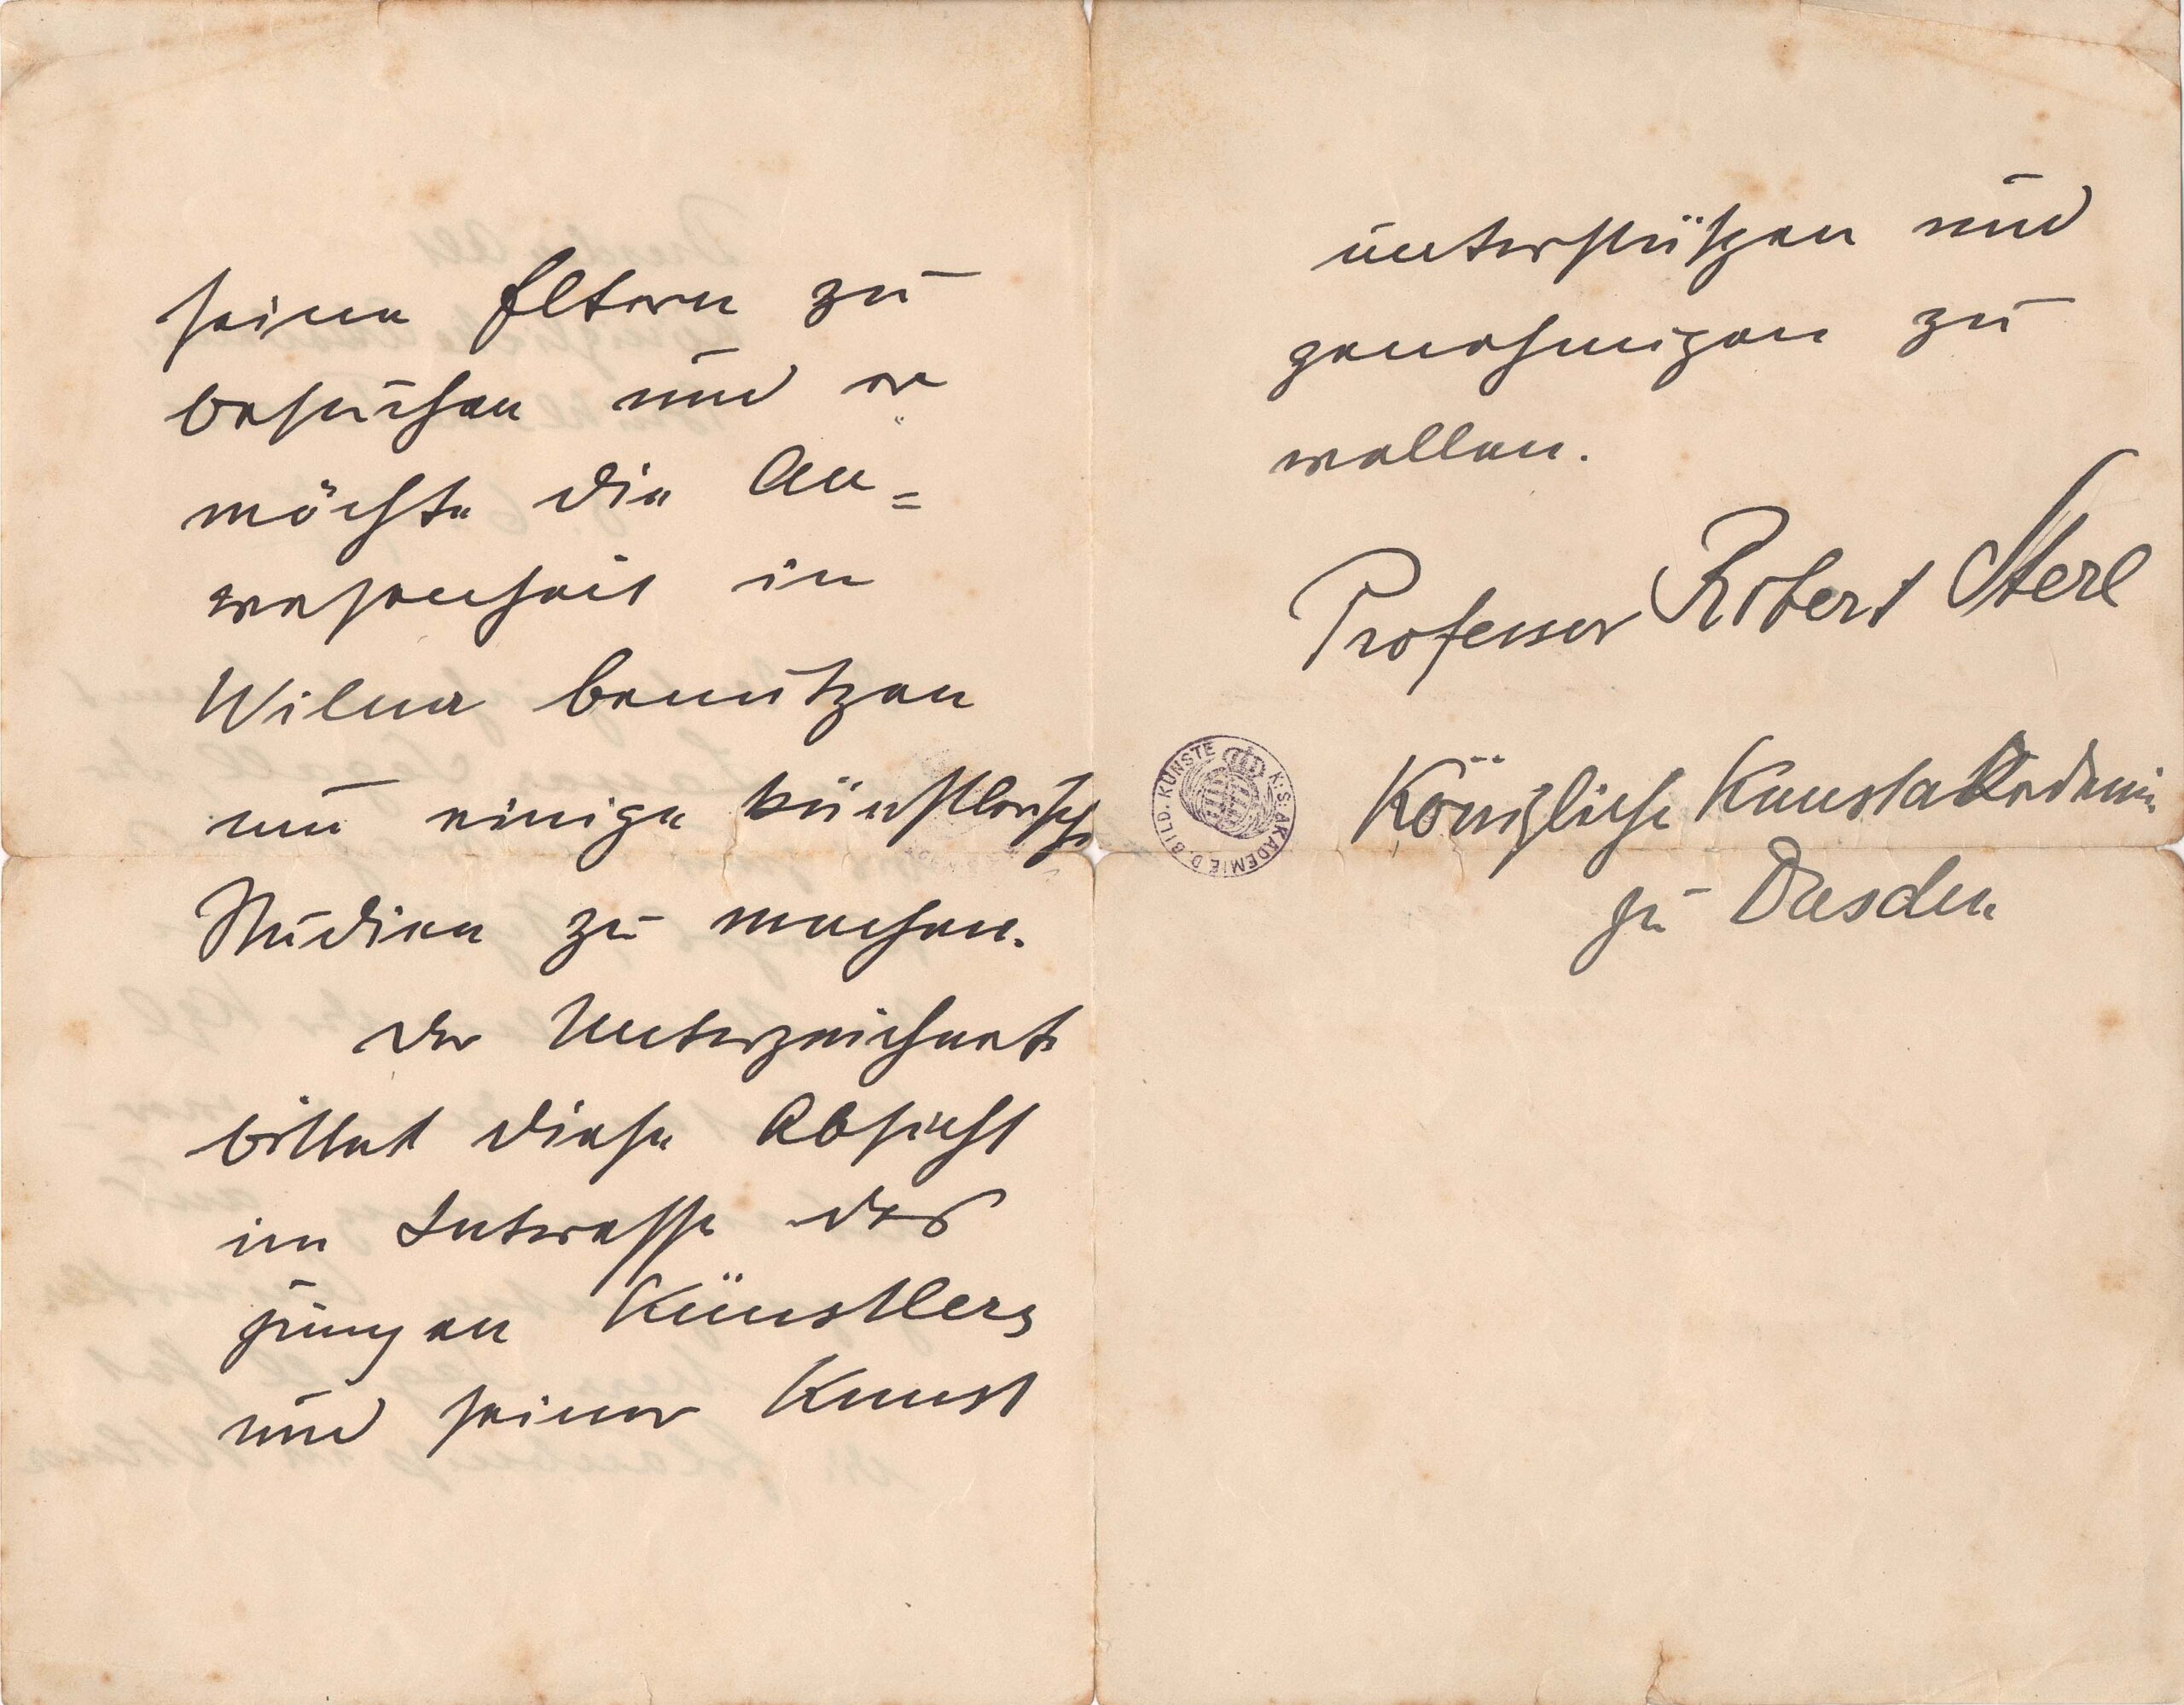 seine Eltern zu
besuchen und er
möchte die An=
wesenheit in
Wilna benutzen
um einige künstlerische
Studien zu machen.
Der Unterzeichnete
bittet diese Absicht
im Interesse des
jungen Künstlers
und seiner Kunst
unterstützen und
genehmigen zu
wollen.
Professor Robert Sterl
K. S. AKADEMIE D. BILD. KÜNSTE
Königliche Kunstakademie
zu Dresden